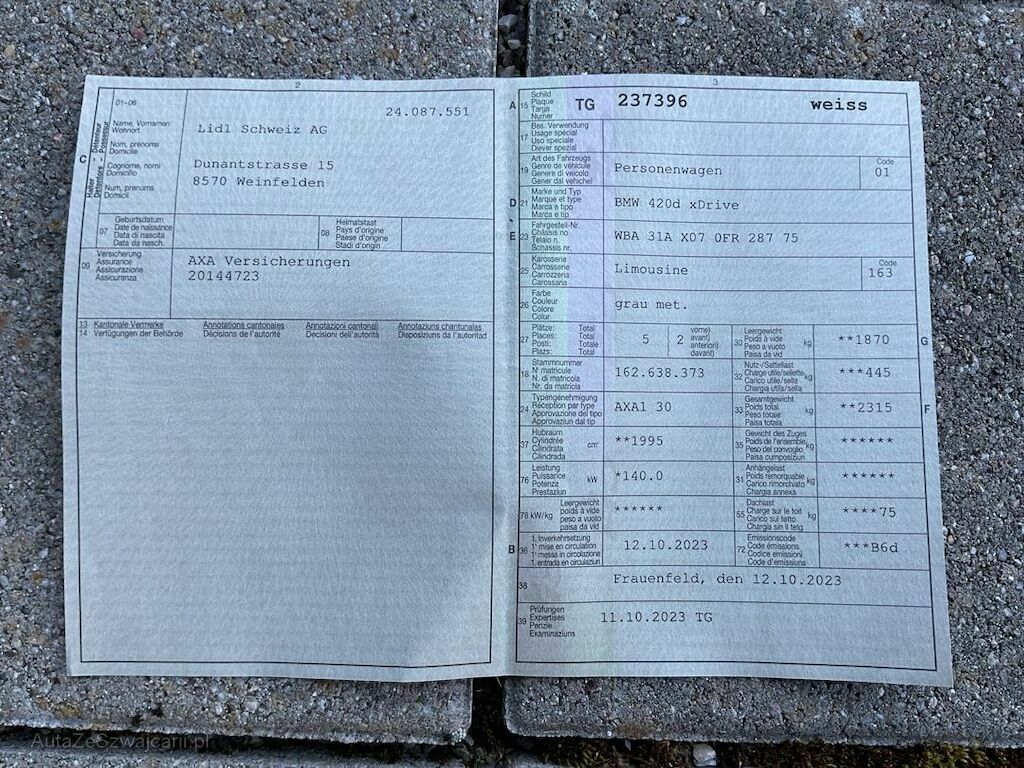 2
01-06
24.087.551
C
Halter - Détenteur
Detentore - Possessur
Name, Vornamen
Wohnort
Nom, prénoms
Domicile
Cognome, nomi
Domicilio
Num, prenums
Domicil
Lidl Schweiz AG
Dunantstrasse 15
8570 Weinfelden
07
Geburtsdatum
Date de naissance
Data di nascita
Data da nasch.
08
Heimatstaat
Pays d'origine
Paese d'origine
Stadi d'origin
09
Versicherung
Assurance
Assicurazione
Assicuranza
AXA Versicherungen
20144723
13 Kantonale Vermerke Annotations cantonales Annotazioni cantonali Annotaziuns chantunalas
14 Verfügungen der Behörde Décisions de l'autorité Decisioni dell'autorità Disposiziuns da l'autoritad
3
A 15
Schild
Plaque
Targa
Numer
TG 237396 weiss
17
Bes. Verwendung
Usage spécial
Uso speciale
Diever spezial
19
Art des Fahrzeugs
Genre de véhicule
Genere di veicolo
Gener dal vehichel
Personenwagen
Code
01
D 21
Marke und Typ
Marque et type
Marca e tipo
Marca e tip
BMW 420d xDrive
E 23
Fahrgestell-Nr.
Châssis no
Telaio n.
Schassis nr.
WBA 31A X07 0FR 287 75
25
Karosserie
Carrosserie
Carrozzeria
Carossaria
Limousine
Code
163
26
Farbe
Couleur
Colore
Colur
grau met.
27
Plätze: Total
Places: Total
Posti: Totale
Plazs: Total
5 ( 2
vorne)
avant)
anteriori)
davant)
30
Leergewicht
Poids à vide
Peso a vuoto
Paisa da vid
kg
**1870
G
18
Stammnummer
N° matricule
N. di matricola
Nr. da matricla
162.638.373
32
Nutz-/Sattellast
Charge utile/sellette
Carico utile/sella
Chargia utila/sella
kg
***445
24
Typengenehmigung
Réception par type
Approvazione del tipo
Approvaziun dal tip
AXA1 30
33
Gesamtgewicht
Poids total
Peso totale
Paisa totala
kg
**2315
F
37
Hubraum
Cylindrée
Cilindrata
Cilindrada
cm³
**1995
35
Gewicht des Zuges
Poids de l'ensemble
Peso del convoglio
Paisa cumposiziun
kg
******
76
Leistung
Puissance
Potenza
Prestaziun
kW
*140.0
31
Anhängelast
Poids remorquable
Carico rimorchiato
Chargia annexa
kg
******
78 kW/kg
Leergewicht
poids à vide
peso a vuoto
paisa da vid
******
55
Dachlast
Charge sur le toit
Carico sul tetto
Chargia sin il tetg
kg
****75
B 36
1. Inverkehrsetzung
1re mise en circulation
1a messa in circolazione
1. entrada en circulaziun
12.10.2023
72
Emissionscode
Code émissions
Codice emissioni
Code d'emissiuns
***B6d
38
Frauenfeld, den 12.10.2023
39
Prüfungen
Expertises
Perizie
Examinaziuns
11.10.2023 TG
AutaZeSzwajcarii.pl